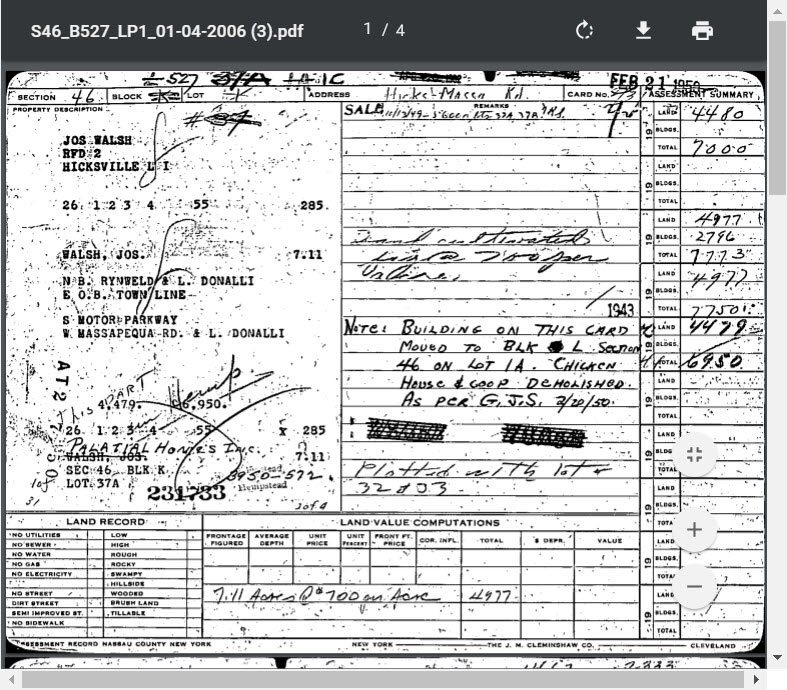 S46_B527_LP1_01-04-2006 (3).pdf
1 / 4
527 37A 1A 1C
FEB 21 1950
SECTION 46 BLOCK K LOT
ADDRESS Hicks-Massa Rd.
CARD NO.
ASSESSMENT SUMMARY
PROPERTY DESCRIPTION
# 37
JOS WALSH
RFD 2
HICKSVILLE L I
26 1 2 3 4 55 285.
WALSH, JOS. 7.11
N B. RYNWELD & L. DONALLI
E O.B. TOWN LINE
S MOTOR PARKWAY
W MASSAPEQUA RD. & L. DONALLI
THIS PART
4,479. 6,950.
26 1 2 3 4 55 x 285
PALATIAL HOMES INC.
WALSH, JOS. 7.11
SEC 46 BLK K
LOT 37A
6950-572.
Hempstead
231733
3 of 4
REMARKS
SALE
Land cultivated
700 per
Value.
1943
NOTE: BUILDING ON THIS CARD
MOVED TO BLK L SECTION
46 ON LOT 1A. CHICKEN
HOUSE & COOP DEMOLISHED.
AS PER G.J.S. 3/20/50.
Plotted with lots
32 & 33
19 LAND 4480
BLDGS.
TOTAL 7000
19 LAND
BLDGS.
TOTAL
19 LAND 4977
BLDGS. 2796
TOTAL 7773
19 LAND 4977
BLDGS.
TOTAL 7750
LAND 4479
BLDGS.
TOTAL 6950
19 LAND
BLDGS.
TOTAL
19 LAND
BLDG
TOTAL
19 LAND
BLDGS.
TOTA
19 LAND
BLDGS.
TOTA
19 LAND
BLDGS.
TOTAL
LAND RECORD
NO UTILITIES LOW
NO SEWER HIGH
NO WATER ROUGH
NO GAS ROCKY
NO ELECTRICITY SWAMPY
HILLSIDE
NO STREET WOODED
DIRT STREET BRUSH LAND
SEMI IMPROVED ST. TILLABLE
NO SIDEWALK
LAND VALUE COMPUTATIONS
FRONTAGE FIGURED AVERAGE DEPTH UNIT PRICE UNIT PERCENT FRONT FT. PRICE COR. INFL. TOTAL $ DEPR. VALUE
7.11 Acres @ $700 an Acre 4977
ASSESSMENT RECORD NASSAU COUNTY NEW YORK
NEW YORK THE J. M. CLEMINSHAW CO. CLEVELAND